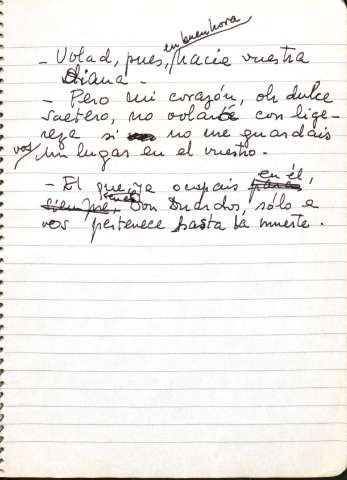 en buen hora
- Volad, pues, hacia vuestra
Diana. -
- Pero mi corazón, oh dulce
saetero, no volará con lige-
reza si no me guardais
vos un lugar en el vuestro. -
en él,
- El que ya ocupais
siempre, Don Duardos, sólo a
vos pertenece hasta la muerte.